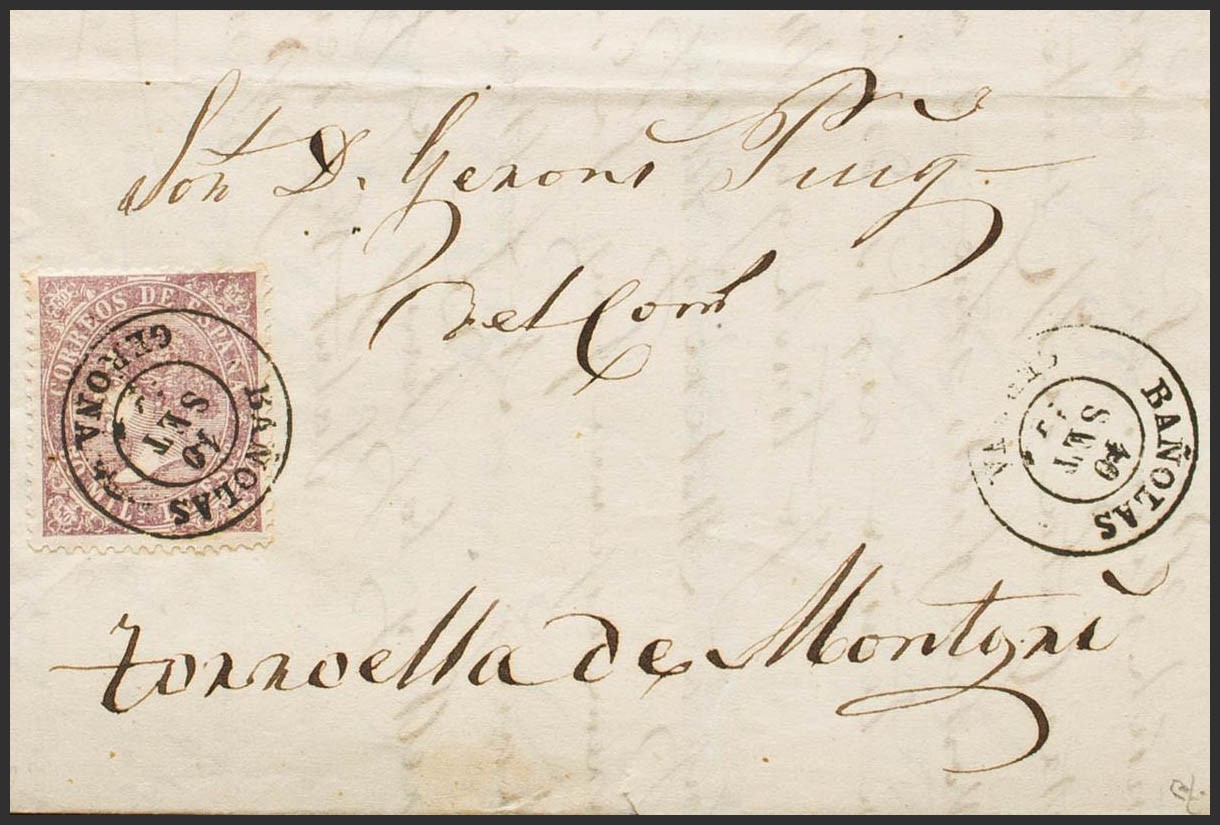 Sor. D. Geroni Puig
del Com
Torroella de Montgri
CORREOS DE ESPAÑA
BAÑOLAS
GERONA
10
SET
BAÑOLAS
GERONA
10
SET